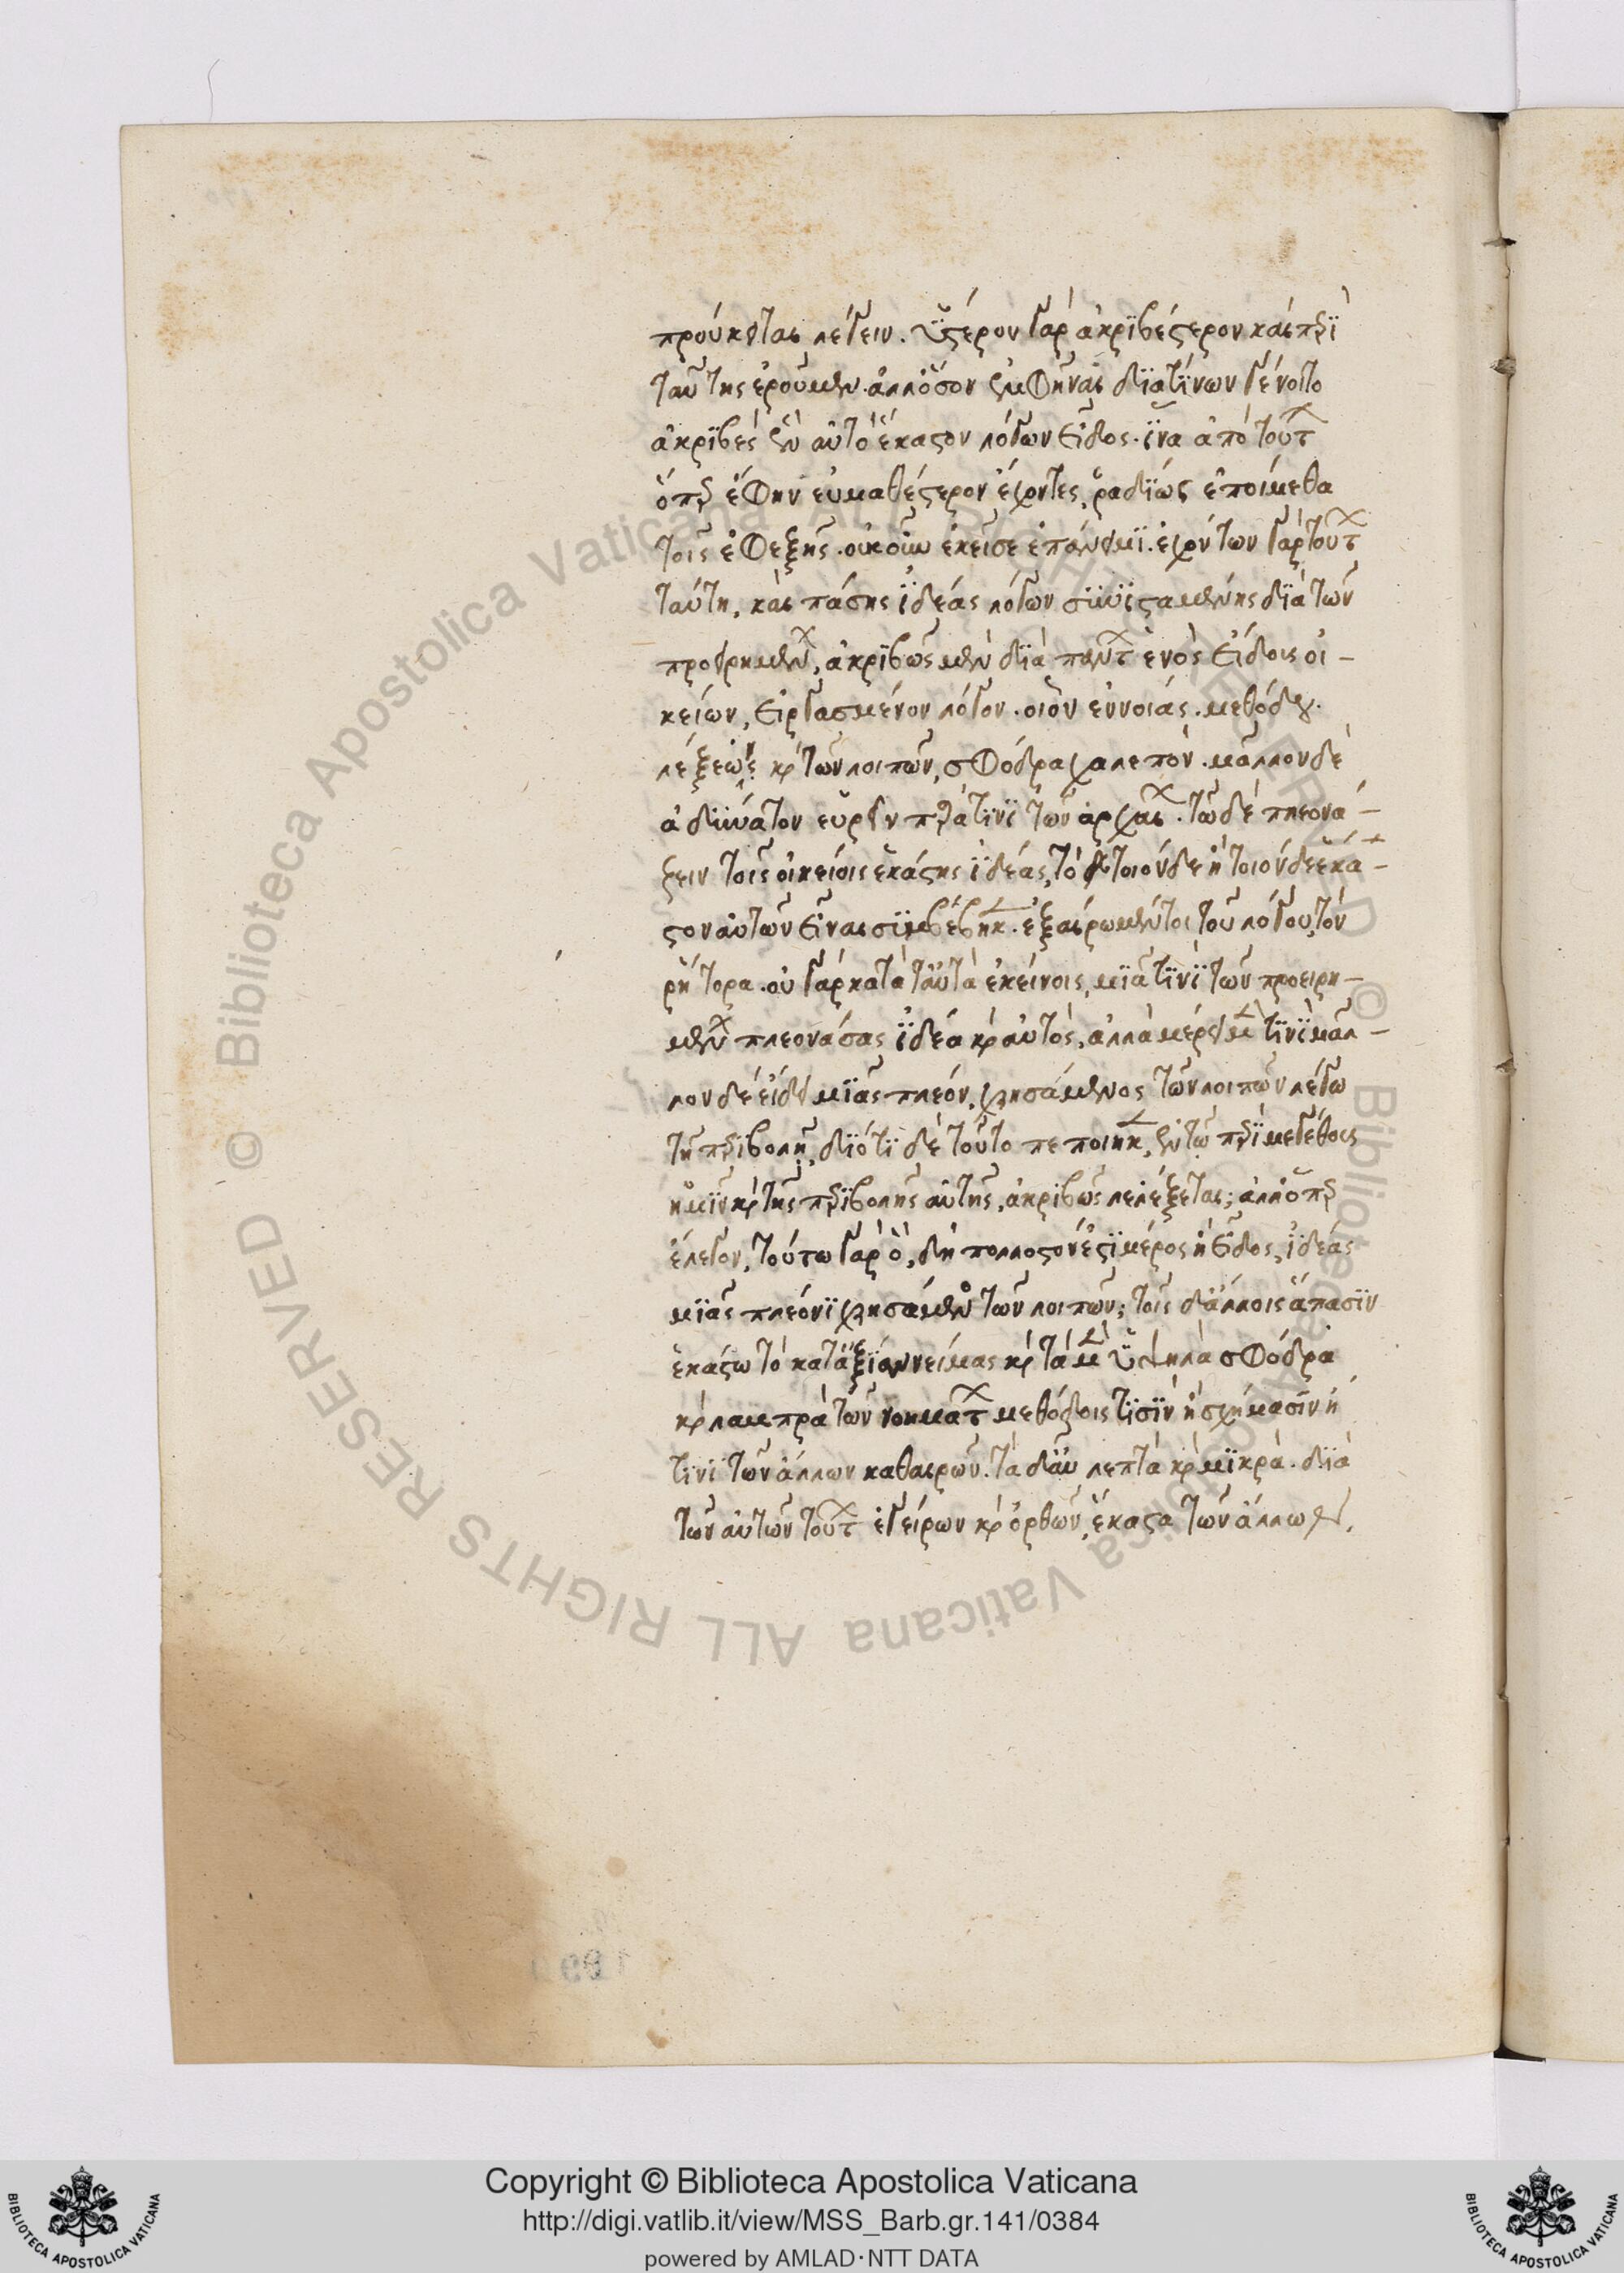 πρόκειται λέγειν. ὕστερον γὰρ ἀκριβέστερον καὶ περὶ
ταύτης ἐροῦμεν. ἀλλ' ὅσον ἐμφῆναι διὰ τίνων γένοιτο
ἀκριβὲς ἐν αὐτὸ ἕκαστον λόγων εἶδος. ἵνα ἀπὸ τούτων
ὅπερ ἔφην εὐμαθέστερον ἔχοντες, ῥαδίως ἐποίμεθα
τοῖς ἐφεξῆς. οὐκοῦν ἐκεῖσε ἐπάνειμι. ἐχόντων γὰρ τούτων
ταύτη, καὶ πάσης ἰδέας λόγων συνισταμένης διὰ τῶν
προειρημένων, ἀκριβῶς μὲν διὰ πάντων ἑνὸς εἴδους οἰ-
κείων, εἰργασμένον λόγον. οἷον ἐννοίας. μεθόδου.
λέξεως καὶ τῶν λοιπῶν, σφόδρα χαλεπὸν. μᾶλλον δὲ
ἀδύνατον εὑρεῖν παρά τινι τῶν ἀρχαίων. τῶ δὲ πλεονά-
ζειν τοῖς οἰκείοις ἑκάστης ἰδέας, τὸ τοιόνδε ἢ τοιόνδε ἕκα-
στον αὐτῶν εἶναι συμβέβηκεν. ἐξαίρω μέντοι τοῦ λόγου, τὸν
ῥήτορα. οὐ γὰρ κατὰ ταὐτὰ ἐκείνοις, μιᾶ τινὶ τῶν προειρη-
μένων πλεονάσας ἰδέα καὶ αὐτὸς, ἀλλὰ μέρει μέν τινι μᾶλ-
λον δὲ εἴδει μιᾶς πλέον, χρησάμενος τῶν λοιπῶν λέγω
τῆ περιβολῆ, διότι δὲ τοῦτο πεποίηκεν, ἐν τῶ περὶ μεγέθους
ἡμῖν καὶ τῆς περιβολῆς αὐτῆς, ἀκριβῶς λελέξεται; ἀλλ' ὅπερ
ἔλεγον, τούτω γὰρ ὃ, δὴ πολλοστόν ἐστι μέρος ἢ εἶδος, ἰδέας
μιᾶς πλέονι χρησάμενος τῶν λοιπῶν; τοῖς δ' ἄλλοις ἅπασιν
ἑκάστω τὸ κατ' ἀξίαν νείμας καὶ τὰ μὲν ὑψηλὰ σφόδρα
καὶ λαμπρὰ τῶν νοημάτων μεθόδοις τισὶν ἢ σχήμασιν ἤ
τινι τῶν ἄλλων καθαιρῶν. τὰ δ' αὖ λεπτὰ καὶ μικρὰ. διὰ
τῶν αὐτῶν τούτων ἐγείρων καὶ ὀρθῶν, ἕκαστα τῶν ἄλλων,
Copyright © Biblioteca Apostolica Vaticana
http://digi.vatlib.it/view/MSS_Barb.gr.141/0384
powered by AMLAD·NTT DATA
BIBLIOTECA APOSTOLICA VATICANA
BIBLIOTECA APOSTOLICA VATICANA
© Biblioteca Apostolica Vaticana ALL RIGHTS RESERVED
© Biblioteca Apostolica Vaticana ALL RIGHTS RESERVED